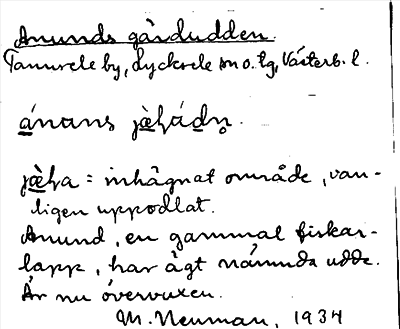 Anunds gårdudden.
Tannsele by, Lycksele sn o. tg, Västerb. l.
ánans
= inhägnat område, van-
ligen uppodlat.
Anund, en gammal fiskar-
lapp, har ägt nämnda udde.
Är nu övervuxen.
M. Neuman, 1934